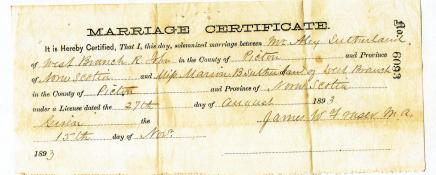 MARRIAGE CERTIFICATE.
No. 6093
It is Hereby Certified, That I, this day, solemnized marriage between Mr. Alex Sutherland
of West Branch R. John in the County of Pictou and Province
of Nova Scotia and Miss Marion B Sutherland of West Branch
in the County of Pictou and Province of Nova Scotia
under a License dated the 27th day of August 1893
Given the James W Fraser M.A.
15th day of Nov.
1893